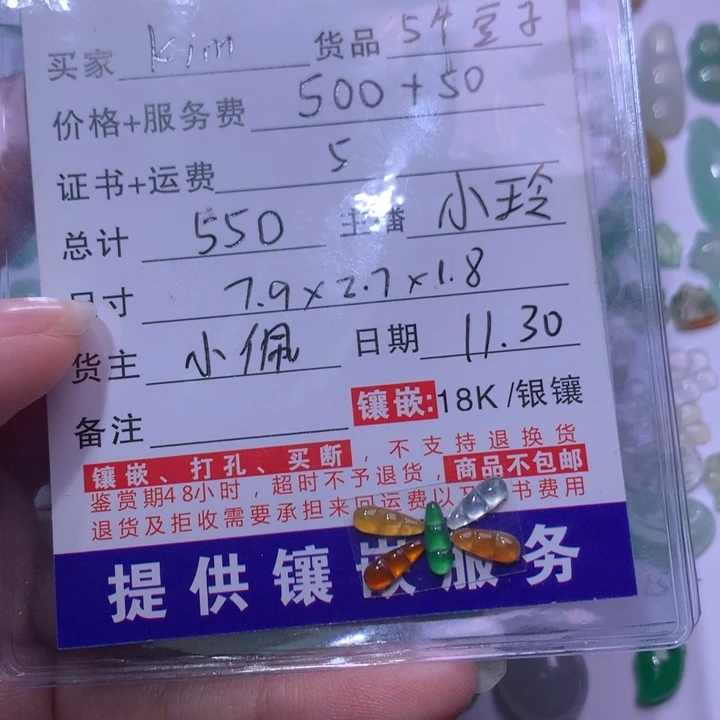 买家 Kim 货品 5个豆子
价格+服务费 500+50
证书+运费 5
总计 550 主播 小玲
尺寸 7.9×2.7×1.8
货主 小佩 日期 11.30
备注 镶嵌:18K/银镶
镶嵌、打孔、买断，不支持退换货
鉴赏期48小时，超时不予退货，商品不包邮
退货及拒收需要承担来回运费以及证书费用
提供镶嵌服务